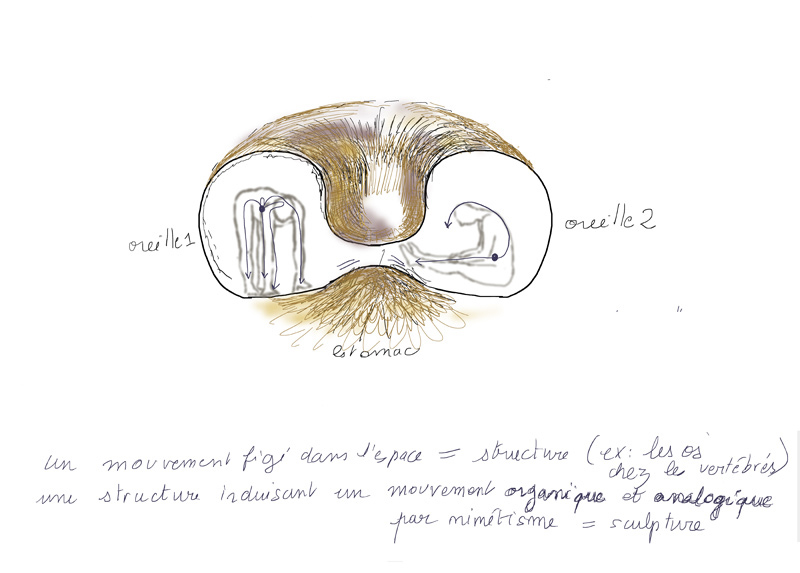 oreille 1
oreille 2
estomac
un mouvement figé dans l'espace = structure (ex: les os
chez les vertébrés)
une structure induisant un mouvement organique et analogique
par mimétisme = sculpture